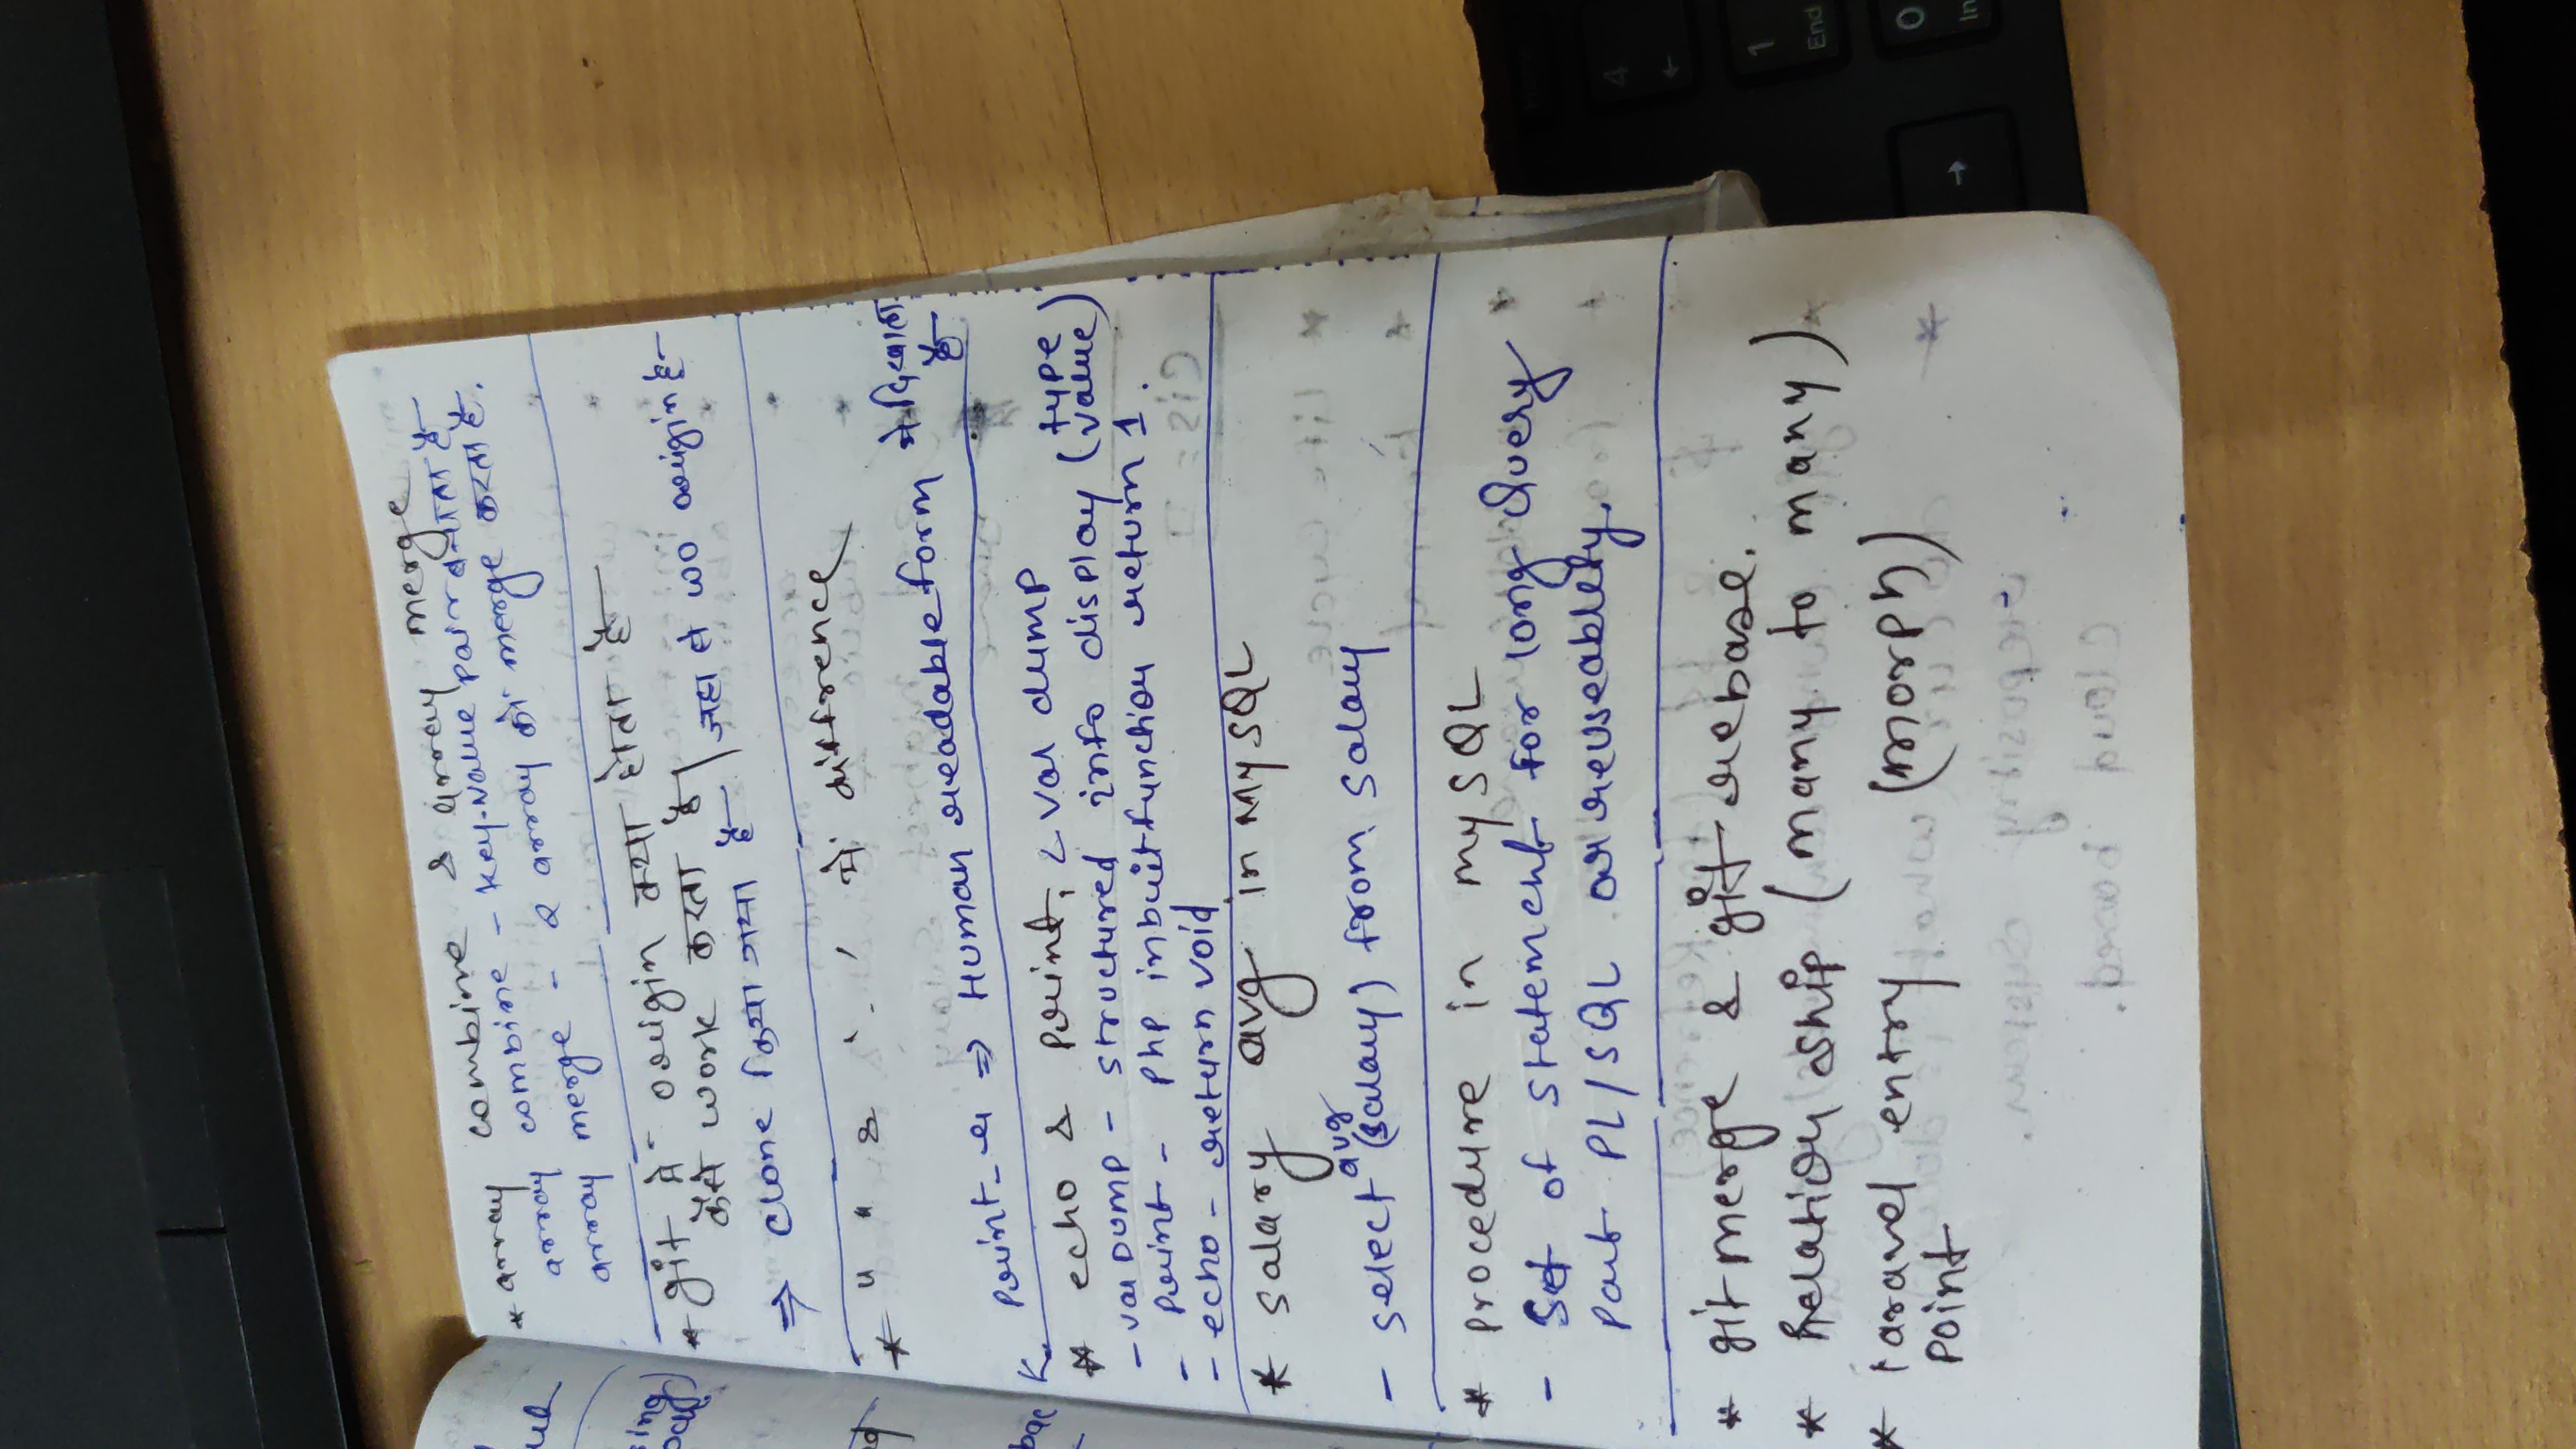 * array combine & array merge
array combine - key-value pair बनाता है
array merge - 2 array को merge करता है.
* git मे origin क्या होता है
कैसे work करता है
⇒ clone किया गया है | जहा से wo origin है
* " " & ' ' मे diffrence
print_r ⇒ Human readable form मे दिखाता है
* echo & print, & var dump
- var DUMP - structured info display (type value)
- print - PHP inbuit function return 1.
- echo - return void
* salary avg in MySQL
- select avg (salary) from salary
* procedure in mySQL
- Set of statement for long Query
part PL/SQL or reuseablety.
* git merge & git rebase.
* Relation ship (many to many)
* laravel entry (morph)
point